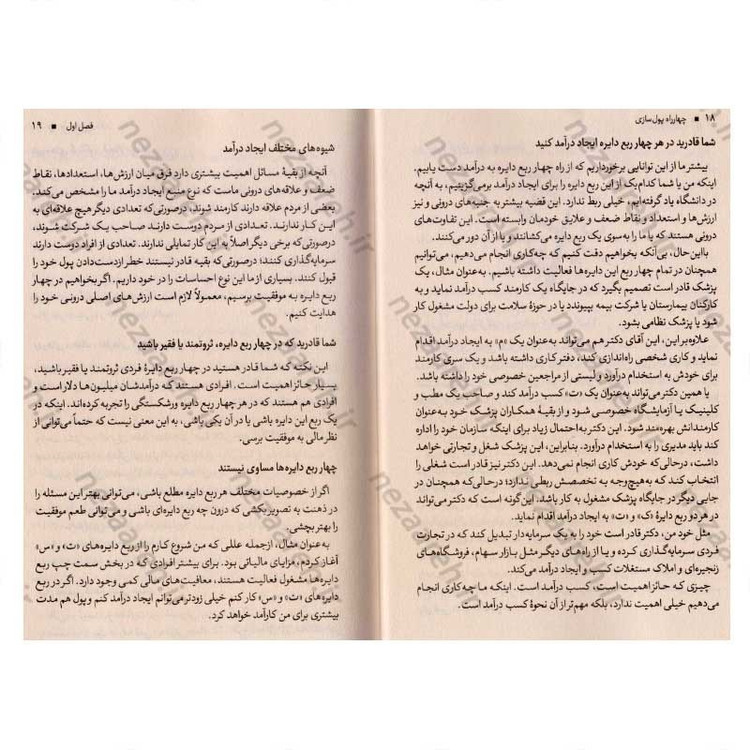 ۱۸ ■ چهارراه پول‌سازی
شما قادرید در هر چهار ربع دایره ایجاد درآمد کنید
بیشتر ما از این توانایی برخورداریم که از راه چهار ربع دایره به درآمد دست یابیم.
اینکه من یا شما کدام‌یک از این ربع دایره را برای ایجاد درآمد برمی‌گزینیم، به آنچه
در دانشگاه یاد گرفته‌ایم، خیلی ربط ندارد. این قضیه بیشتر به جنبه‌های درونی و نیز
ارزش‌ها و استعداد و نقاط ضعف و علایق خودمان وابسته است. این تفاوت‌های
درونی هستند که یا ما را به سوی یک ربع دایره می‌کشانند و یا از آن دور می‌کنند.
بااین‌حال، بی‌آنکه بخواهیم دقت کنیم که چه‌کاری انجام می‌دهیم، می‌توانیم
همچنان در تمام چهار ربع این دایره‌ها فعالیت داشته باشیم. به‌عنوان مثال، یک
پزشک قادر است تصمیم بگیرد که در جایگاه یک کارمند کسب درآمد نماید و به
کارکنان بیمارستان یا شرکت بیمه بپیوندد یا در حوزهٔ سلامت برای دولت مشغول کار
شود یا پزشک نظامی بشود.
علاوه‌براین، این آقای دکتر هم می‌تواند به‌عنوان یک «م» به ایجاد درآمد اقدام
نماید و کاری شخصی راه‌اندازی کند، دفتر کاری داشته باشد و یک سری کارمند
برای خودش به استخدام درآورد و لیستی از مراجعین خصوصی خود را داشته باشد.
یا همین دکتر می‌تواند به‌عنوان یک «ت» کسب درآمد کند و صاحب یک مطب و
کلینیک یا آزمایشگاه خصوصی شود و از بقیهٔ همکاران پزشک خود به‌عنوان
کارمندانش بهره‌مند شود. این دکتر به‌احتمال زیاد برای اینکه سازمان خود را اداره
کند باید مدیری را به استخدام درآورد. بنابراین، این پزشک شغل و تجارتی خواهد
داشت، درحالی‌که خودش کاری انجام نمی‌دهد. این دکتر نیز قادر است شغلی را
انتخاب کند که به‌هیچ‌وجه به تخصصش ربطی ندارد؛ درحالی‌که همچنان در
جایی دیگر در جایگاه پزشک مشغول به کار باشد. این‌گونه است که دکتر می‌تواند
در هر دو ربع دایرهٔ «ک» و «ت» به ایجاد درآمد اقدام نماید.
مثل خود من، دکتر قادر است خود را به یک سرمایه‌دار تبدیل کند که در تجارت
فردی سرمایه‌گذاری کرده و یا از راه‌های دیگر مثل بازار سهام، فروشگاه‌های
زنجیره‌ای و املاک مستغلات کسب و ایجاد درآمد می‌کند.
چیزی که حائز اهمیت است، کسب درآمد است. اینکه ما چه کاری انجام
می‌دهیم خیلی اهمیت ندارد، بلکه مهم‌تر از آن نحوهٔ کسب درآمد است.
فصل اول ■ ۱۹
شیوه‌های مختلف ایجاد درآمد
آنچه از بقیهٔ مسائل اهمیت بیشتری دارد فرق میان ارزش‌ها، استعدادها، نقاط
ضعف و علاقه‌های درونی ماست که نوع منبع ایجاد درآمد ما را مشخص می‌کند.
بعضی از مردم علاقه دارند کارمند شوند، درصورتی‌که تعدادی دیگر هیچ علاقه‌ای به
این کار ندارند. تعدادی از مردم دوست دارند صاحب یک شرکت شوند،
درصورتی‌که برخی دیگر اصلاً به این کار تمایلی ندارند. تعدادی از افراد دوست دارند
سرمایه‌گذاری کنند؛ درصورتی‌که بقیه قادر نیستند خطر ازدست‌دادن پول خود را
قبول کنند. بسیاری از ما این نوع احساسات را در خود داریم. اگر بخواهیم در چهار
ربع دایره به موفقیت برسیم، معمولاً لازم است ارزش‌های اصلی درونی خود را
هدایت کنیم.
شما قادرید که در چهار ربع دایره، ثروتمند یا فقیر باشید
این نکته که شما قادر هستید در چهار ربع دایرهٔ فردی ثروتمند یا فقیر باشید،
بسیار حائز اهمیت است. افرادی هستند که درآمدشان میلیون‌ها دلار است و
افرادی هم هستند که در هر چهار ربع دایره ورشکستگی را تجربه کرده‌اند. اینکه در
یک ربع این دایره باشی یا در آن یکی باشی، به این معنی نیست که حتماً می‌توانی از
نظر مالی به موفقیت برسی.
چهار ربع دایره‌ها مساوی نیستند
اگر از خصوصیات مختلف هر ربع دایره مطلع باشی، می‌توانی بهتر این مسئله را
در ذهنت به تصویر بکشی که درون چه ربع دایره‌ای باشی و می‌توانی طعم موفقیت
را بهتر بچشی.
به‌عنوان مثال، ازجمله عللی که من شروع کارم را از ربع دایره‌های «ت» و «س»
آغاز کردم، مزایای مالیاتی بود. برای بیشتر افرادی که در بخش سمت چپ ربع
دایره‌ها مشغول فعالیت هستند، معافیت‌های مالی کمی وجود دارد. اگر در ربع
دایره‌های «ت» و «س» کار کنم خیلی زودتر می‌توانم ایجاد درآمد کنم و پول هم مدت
بیشتری برای من کارآمد خواهد کرد.